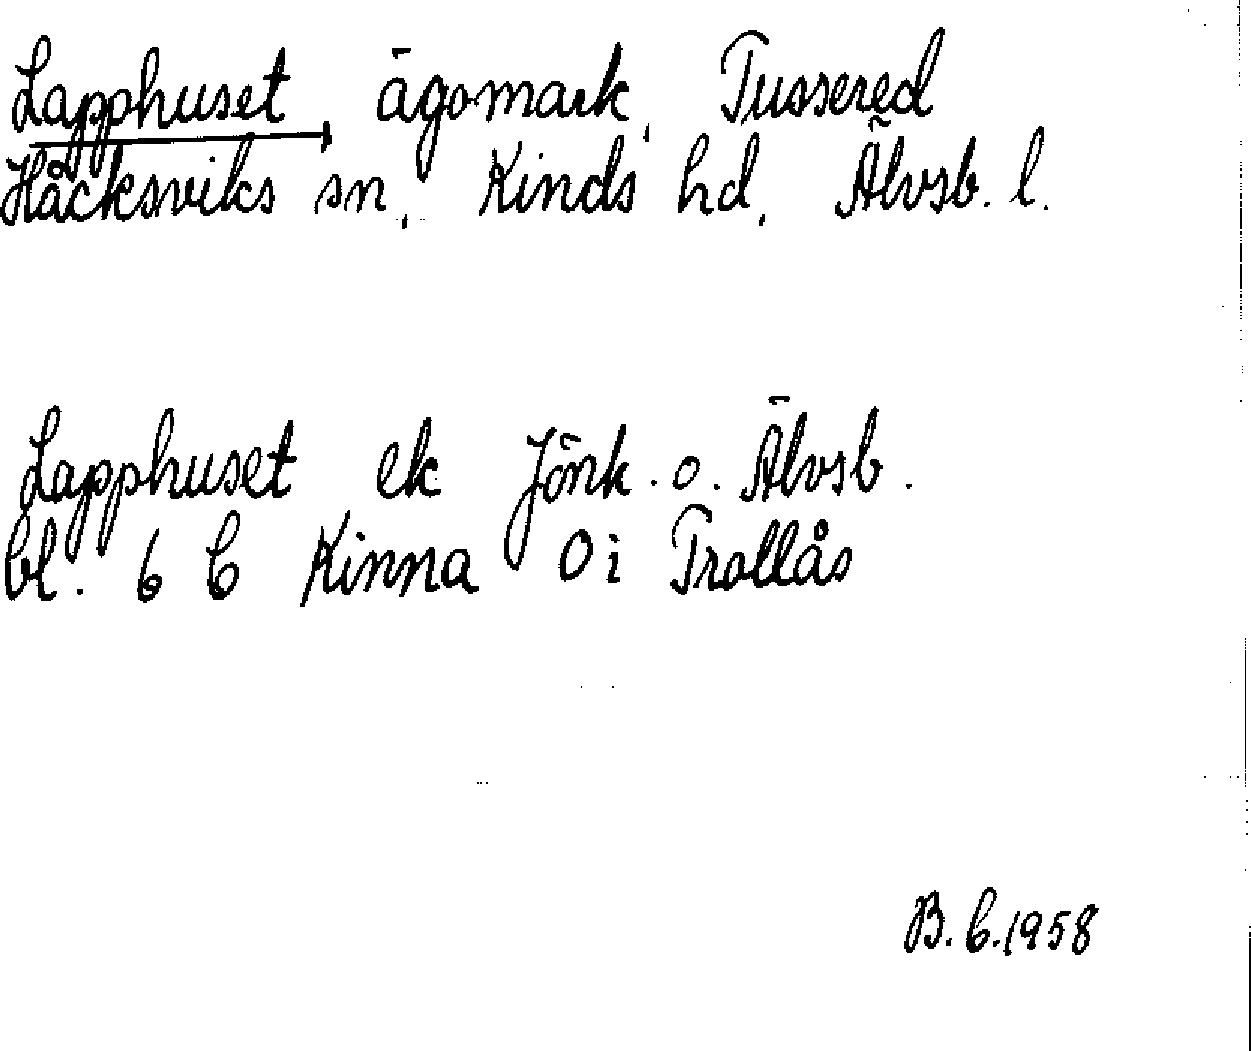 Lapphuset, ägomark, Tussered
Håcksviks sn, Kinds hd, Älvsb. l.
Lapphuset ek Jönk. o. Älvsb.
bl. 6 C Kinna O i Trollås
B. C. 1958